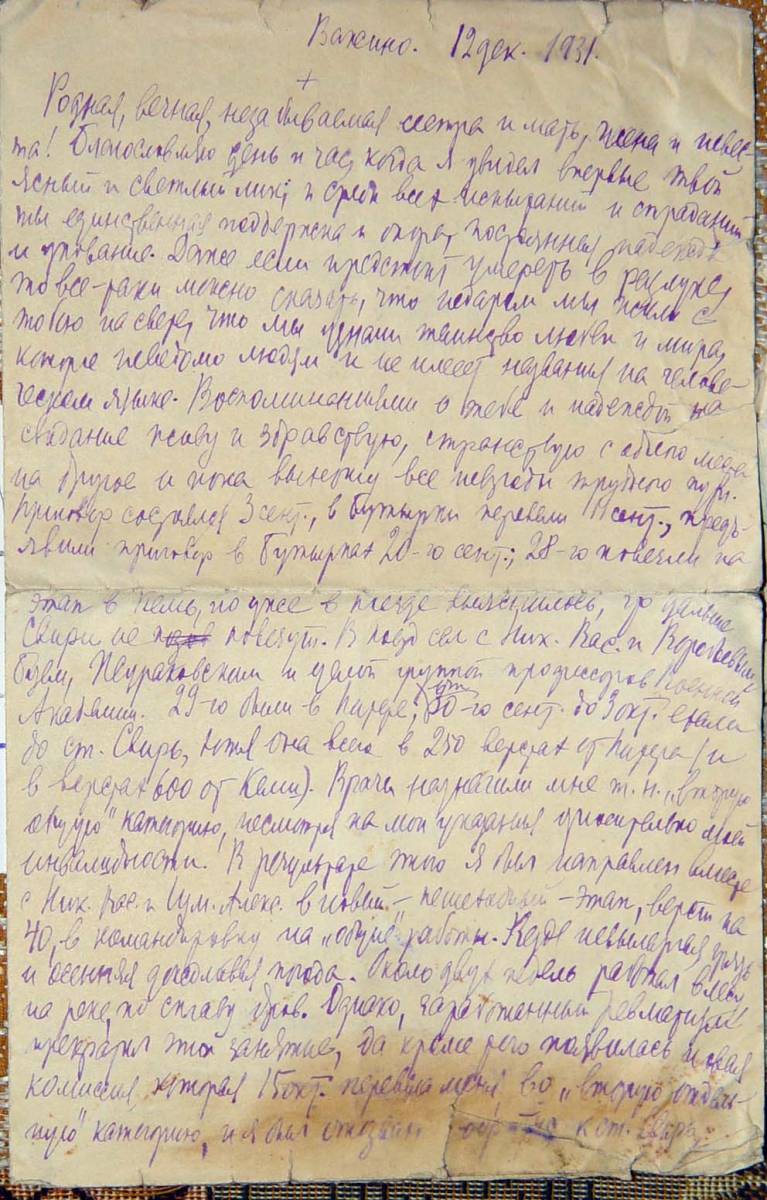 Важино. 12 дек. 1931.
+
Родная, вечная, незабываемая сестра и мать, жена и невес-
та! Благословляю день и час, когда я увидел впервые твой
ясный и светлый лик; и среди всех испытаний и страданий
ты единственная поддержка и опора, постоянная надежда
и упование. Даже если предстоит умереть в разлуке,
то все-таки можно сказать, что недаром мы жили с
тобою на свете, что мы узнали таинство любви и мира,
которое неведомо людям и не имеет названия на челове-
ческом языке. Воспоминаниями о тебе и надеждой на
свидание живу и здравствую, странствую с одного места
на другое и пока выношу все невзгоды трудного пути.
Приговор состоялся 3 сент., в Бутырки перевели 11 сент., предъ-
явили приговор в Бутырках 20-го сент.; 28-го повезли на
этап в Кемь, но уже в поезде выяснилось, что дальше
Свири не повезут. В поезд сел с Ник. Вас. и
и целой группой профессоров Военной
Академии. 29-го были в Питере; от 30-го сент. до 3 окт. ехали
до ст. Свирь, хотя она всего в 250 верстах от Питера (и
в верстах 600 от Кеми). Врачи назначили мне т. н. „вторую
общую" категорию, несмотря на мои указания относительно моей
инвалидности. В результате этого я был направлен вместе
с Ник. Вас. и Алекс. в новый – пешеходный – этап, верст на
40, в командировку на „общие" работы. Везде невылазная грязь
и осенняя дождливая погода. Около двух недель работал в лесу и
на реке, по сплаву дров. Однако, заработанный ревматизм
прекратил это занятие, да кроме того появилась новая
комиссия, которая 15 окт. перевела меня во „вторую отдель-
ную" категорию, и я был отозван к ст. Свирь,